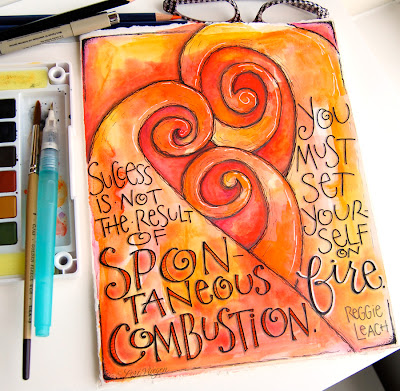 SUCCESS
IS NOT
THE RESULT
OF
SPON-
TANEOUS
COMBUSTION.
YOU
MUST
SET
YOUR-
SELF
ON
fire.
REGGIE
LEACH